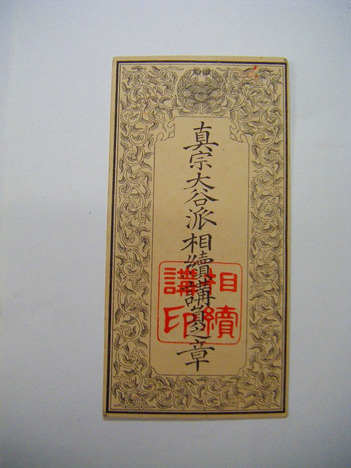 真宗大谷派相續講員之章
相續
講印